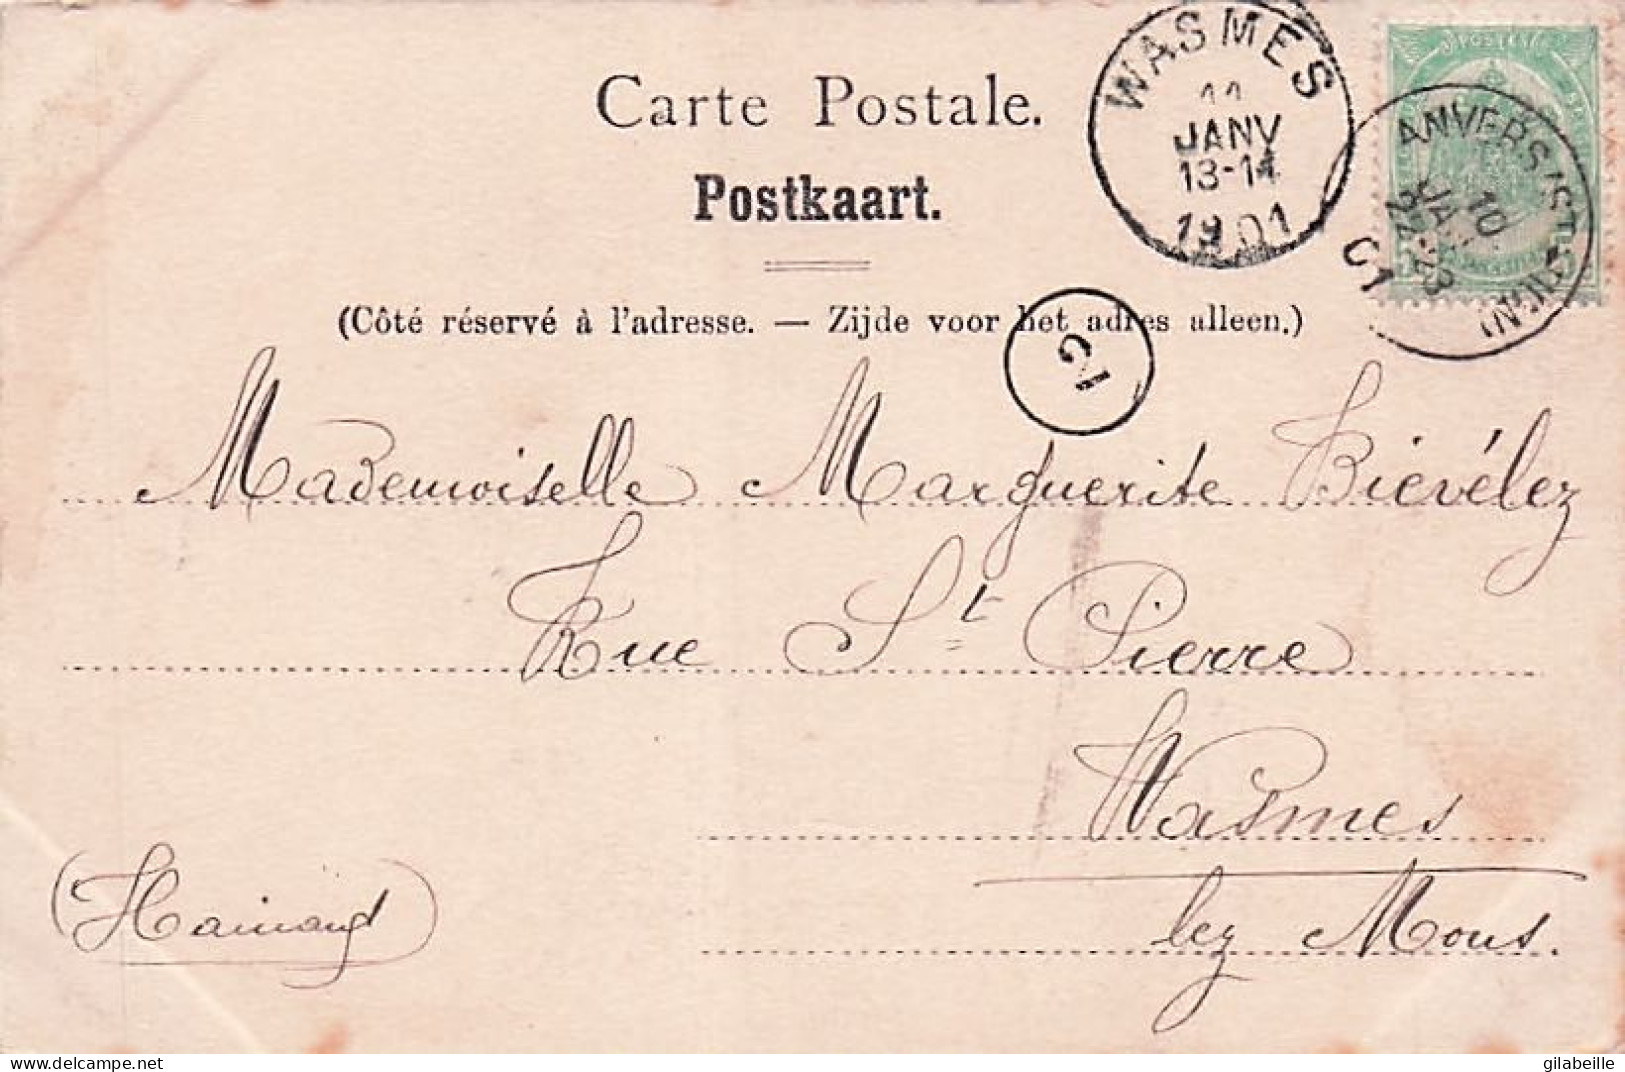 Carte Postale.
Postkaart.
(Côté réservé à l'adresse. — Zijde voor het adres alleen.)
WASMES
11
JANV
13-14
1901
ANVERS
10
JA
22-23
01
2
Mademoiselle Marguerite Biévélez
Rue St Pierre
Wasmes
lez Mons.
(Hainaut)
delcampe.net
gilabeille